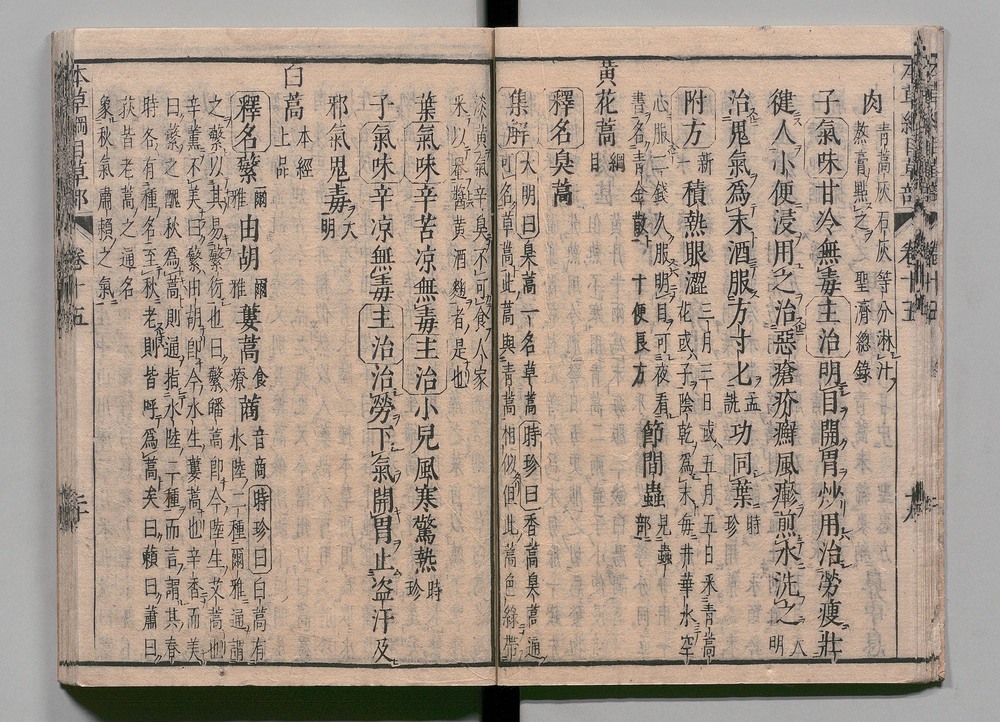 肉青蒿灰石灰等分淋汁熬膏點之聖濟總錄
子氣味甘冷無毒主治明目開胃炒用治勞瘦壯
健人小便浸用之治惡瘡疥癬風𤺋煎水洗之大明
治鬼氣爲末酒服方寸匕孟詵功同葉時珍
附方新一積熱眼澀三月三日或五月五日采青蒿花或子陰乾爲末每井華水空
心服二錢久服明目可夜看書名青金散十便良方節間蟲見蟲部
黃花蒿綱目
釋名臭蒿
集解大明曰臭蒿一名草蒿時珍曰香蒿臭蒿通可名草蒿此蒿與青蒿相似但此蒿色綠帶
淡黃氣辛臭不可食人家采以罨醬黃酒麴者是也
葉氣味辛苦凉無毒主治小兒風寒驚熱時珍
子氣味辛凉無毒主治治勞下氣開胃止盜汗及
邪氣鬼毒大明
白蒿本經上品
釋名蘩爾雅由胡爾雅蔞蒿食療蔏音商時珍曰白蒿有水陸二種爾雅通謂
之蘩以其易蘩衍也曰蘩皤蒿卽今陸生艾蒿也
辛薰不美曰蘩由胡卽今水生蔞蒿也辛香而美
曰蘩之醜秋爲蒿則通指水陸二種而言謂其春
時各有種名至秋老則皆呼爲蒿矣曰藾曰蕭曰
荻皆老蒿之通名
象秋氣肅賴之氣
本草綱目草部
卷十五